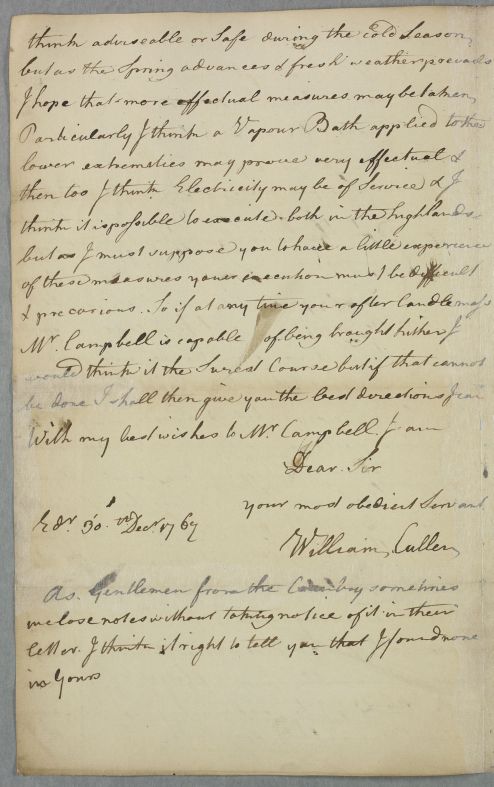 think adviseable or Safe during the Cold Season,
but as the Spring advances & fresh weather prevails
I hope that more effectual measures may be taken,
Particularly I think a Vapour Bath applied to the
lower extremities may prove very effectual &
then too I think Electricity may be of Service & I
think it is possible to execute both in the highlands
but as I must suppose you to have a little experience
of these measures your execution must be difficult
& precarious. So if at any time your after Candlemass
Mr. Campbell is capable of being brought hither I
would think it the Surest Course but if that cannot
be done I shall then give you the best directions I can
With my best wishes to Mr. Campbell. I am
Dear Sir
your most obedient Servant
Edr. 30.th Decr 1767
William Cullen
As Gentlemen from the Country sometimes
inclose notes without taking notice of it in their
letter. I think it right to tell you that I found none
in Yours